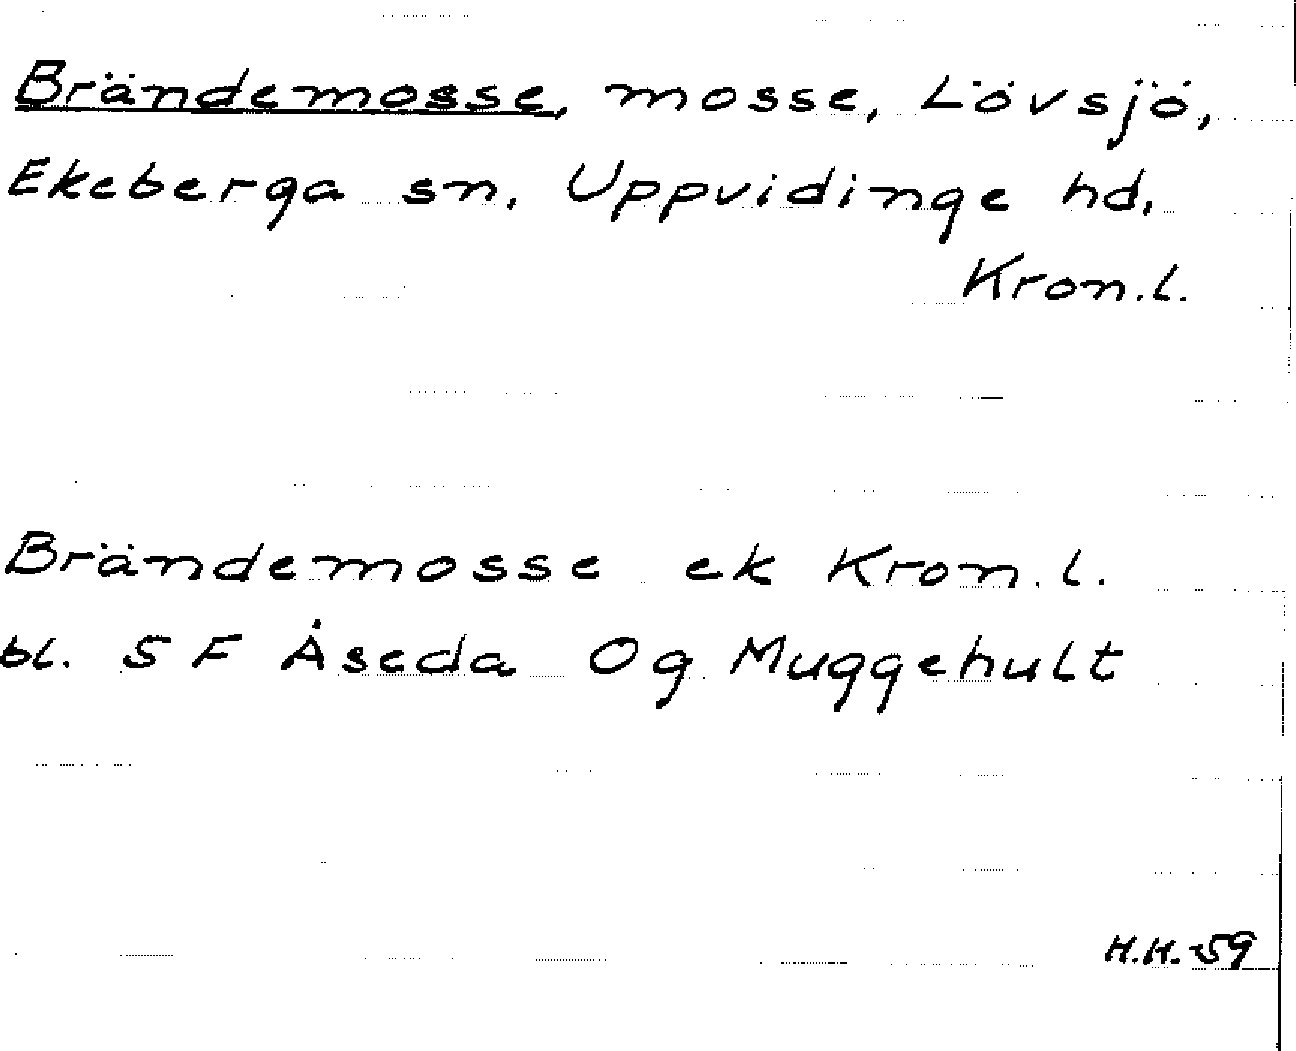 Brändemosse, mosse, Lövsjö,
Ekeberga sn, Uppvidinge hd,
Kron.l.
Brändemosse ek Kron.l.
bl. 5 F Åseda Og Muggehult
H.H.-59